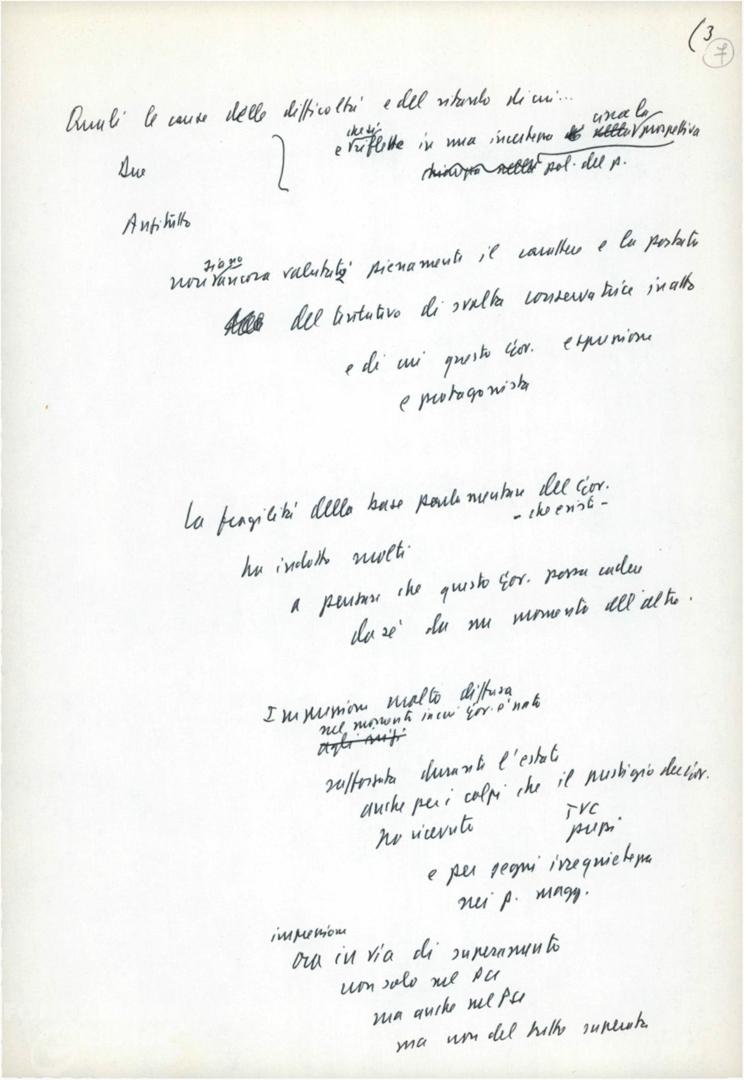 (3
7
Quali le cause delle difficoltà e del ritardo di cui...
che si circa la
e riflette in una incertezza prospettiva
Due pol. del p.
Anzitutto
siano
non ancora valutati pienamente il carattere e la portata
del tentativo di svolta conservatrice in atto
e di cui questo Gov. espressione
e protagonista
La fragilità della base parlamentare del Gov.
- che esiste -
ha indotto molti
a pensare che questo Gov. possa cadere
da sé da un momento all'altro.
Impressione molto diffusa
nel momento in cui Gov. è nato
agli inizi
rafforzata durante l'estate
anche per i colpi che il prestigio del Gov.
ha ricevuto IVC
prezzi
e per segni irrequietezza
nei p. magg.
impressione
ora in via di superamento
non solo nel PCI
ma anche nel PSI
ma non del tutto superata